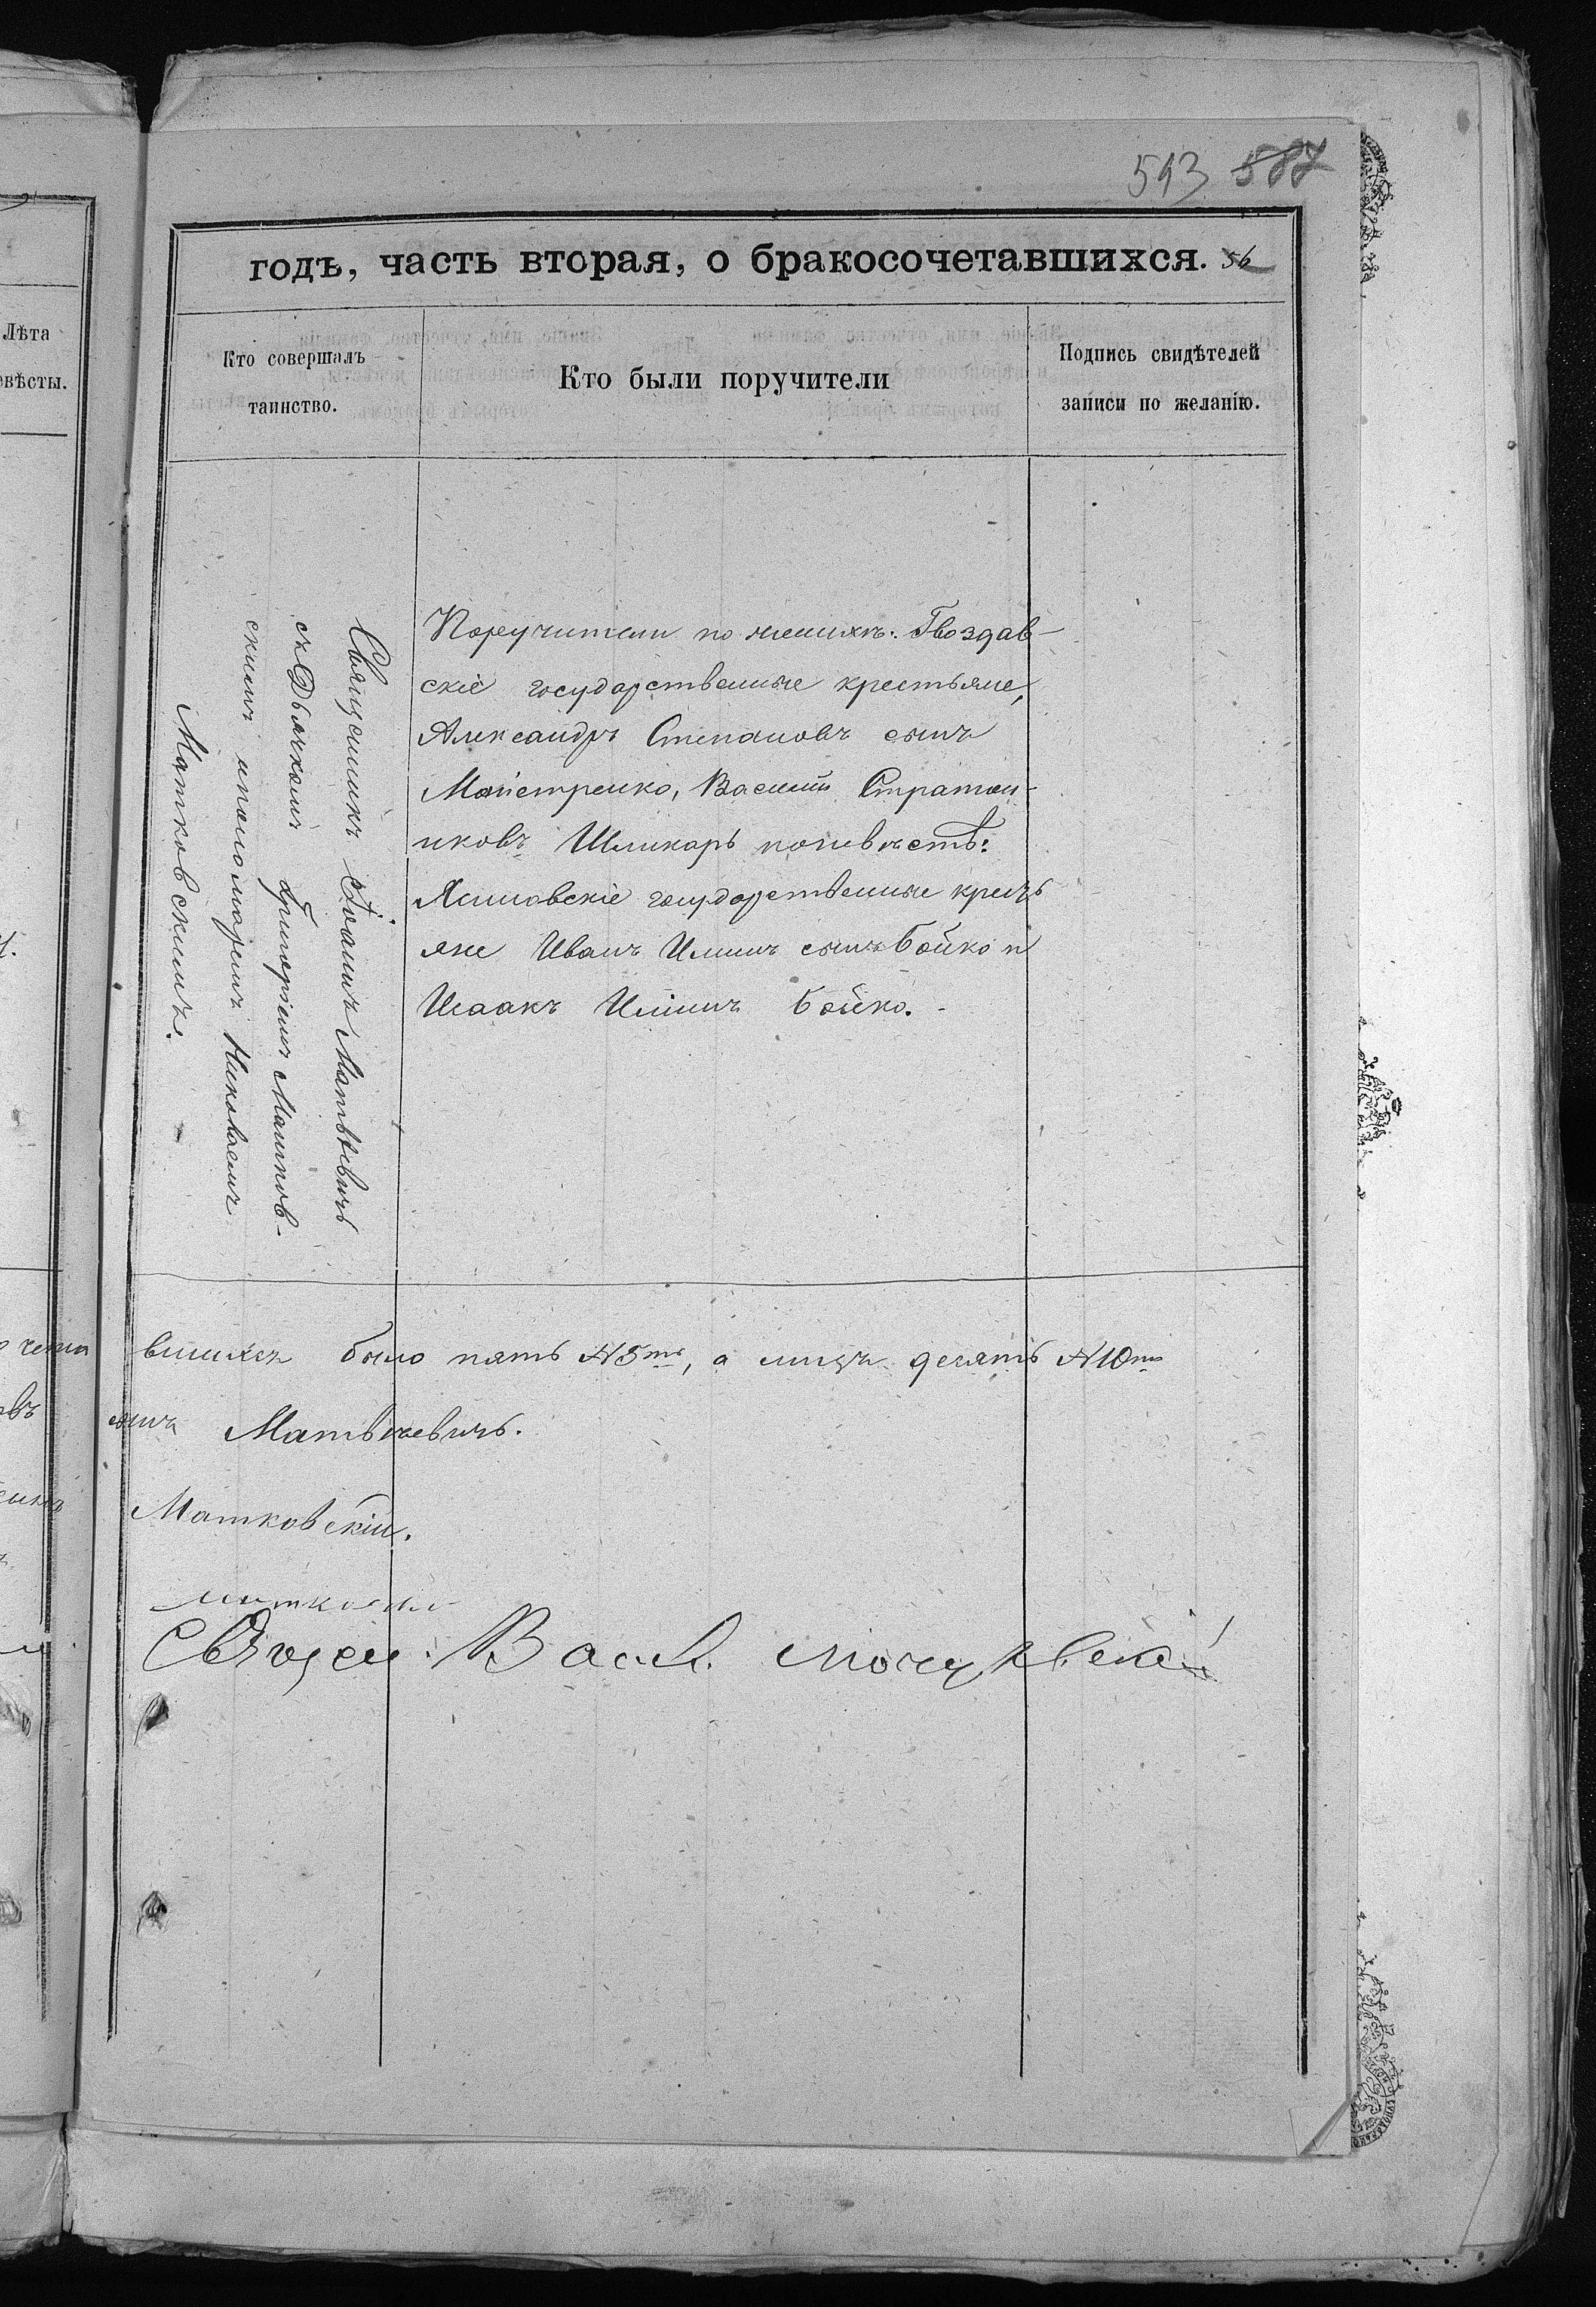 593 587
годъ, часть вторая, о бракосочетавшихся. 56
Лѣта
евѣсты.
Кто совершалъ
таинство.
Кто были поручители
Подпись свидѣтелей
записи по желанію.
Священникъ Іоаннъ Матвѣевичъ
съ Дьячкомъ Григоріемъ Матков-
скимъ и пономаремъ Николаемъ
Матковскимъ.
Поручители по женихѣ: Гвоздав-
скіе государственные крестьяне,
Александръ Степановъ сынъ
Майстренко, Василій Стратон-
иковъ Шликарь по невѣстѣ:
Ясиновскіе государственные кресть
яне Иванъ Илiинъ сынъ Бойко и
Исаакъ Илiинъ Бойко.
вшихся было пять №5ть, а лицъ десять №10ть
Матвѣевичъ.
Матковскій.
Священ. Васил.